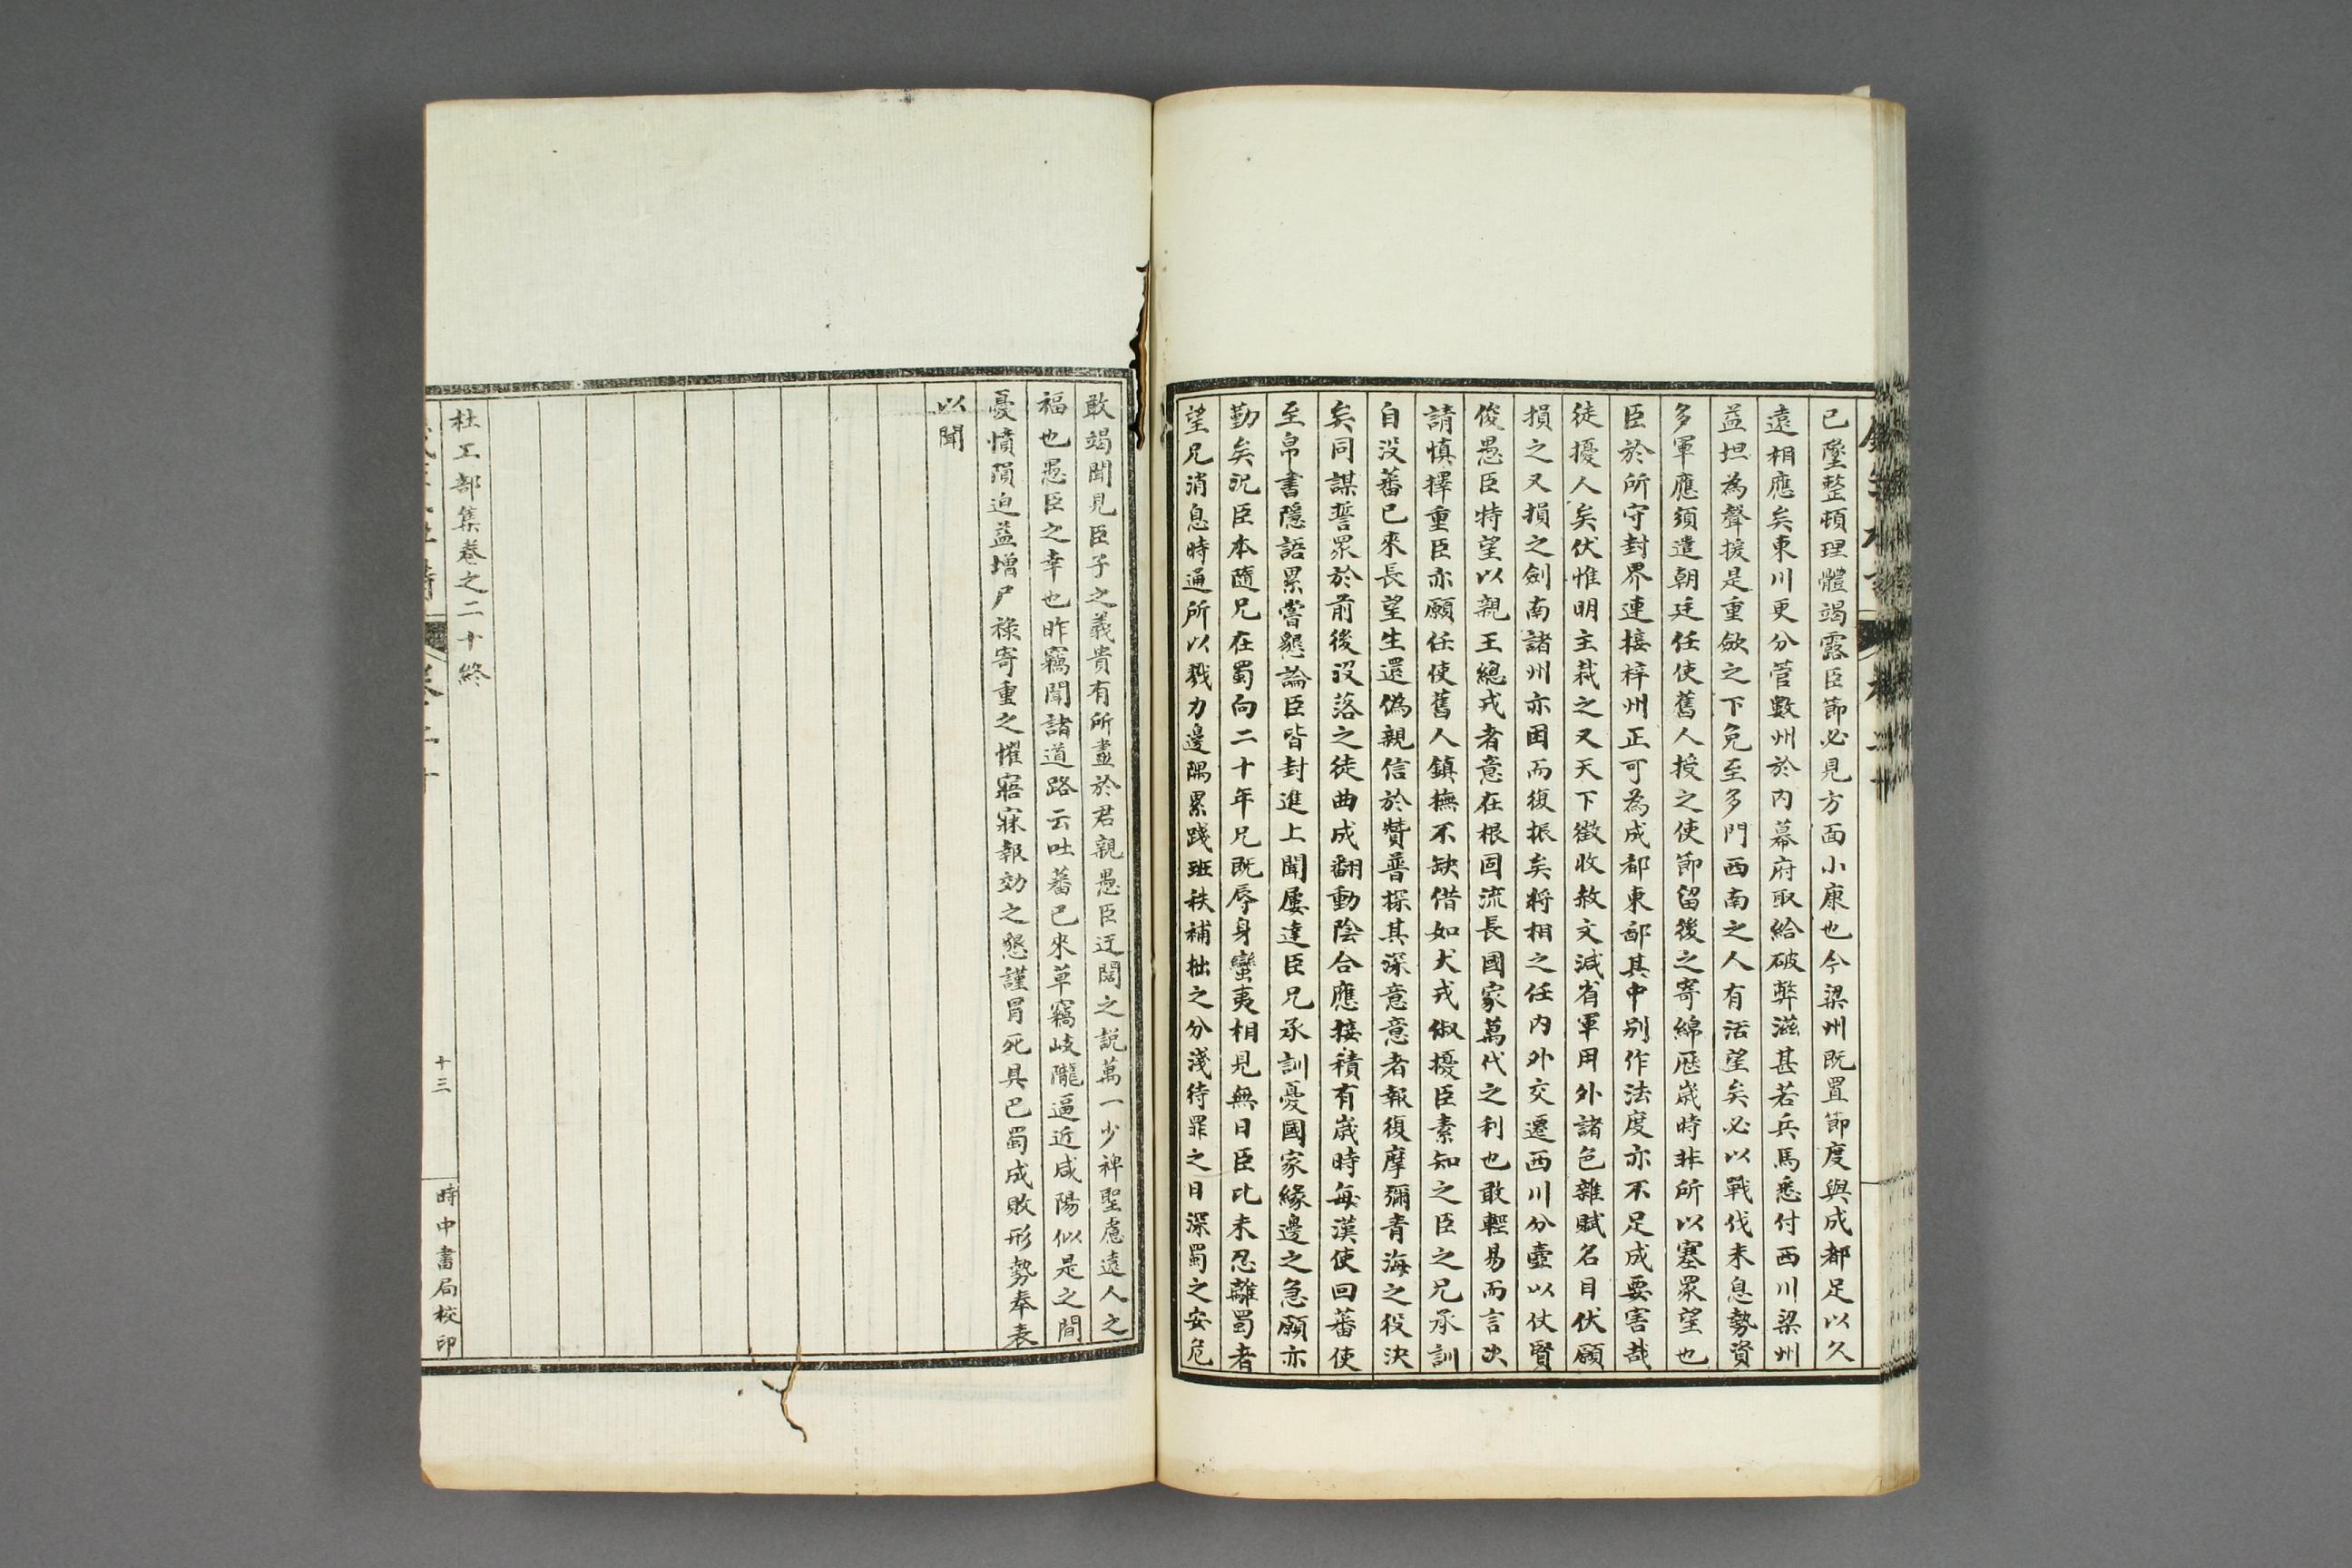 已墮整頓理體竭露臣節必見方面小康也今梁州既置節度與成都足以久
遠相應矣東川更分管數州於內幕府取給破弊滋甚若兵馬悉付西川梁州
益坦為聲援是重斂之下免至多門西南之人有活望矣必以戰伐未息勢資
多軍應須遣朝廷任使舊人授之使節留後之寄綿歷歲時非所以塞眾望也
臣於所守封界連接梓州正可為成都東鄙其中別作法度亦不足成要害哉
徒擾人矣伏惟明主裁之又天下徵收赦文減省軍用外諸色雜賦名目伏願
損之又損之劍南諸州亦困而復振矣將相之任內外交遷西川分壼以仗賢
俊愚臣特望以親王總戎者意在根固流長國家萬代之利也敢輕易而言次
請慎擇重臣亦願任使舊人鎮撫不缺借如犬戎俶擾臣素知之臣之兄承訓
自沒蕃已來長望生還偽親信於贊普探其深意意者報復摩彌青海之役決
矣同謀誓眾於前後沒落之徒曲成翻動陰合應接積有歲時每漢使回蕃使
至帛書隱語累嘗懇論臣皆封進上聞屢達臣兄承訓憂國家緣邊之急願亦
勤矣況臣本隨兄在蜀向二十年兄既辱身蠻夷相見無日臣比未忍離蜀者
望兄消息時通所以戮力邊隅累踐班秩補拙之分淺待罪之日深蜀之安危
敢竭聞見臣子之義貴有所盡於君親愚臣迂闊之說萬一少裨聖慮遠人之
福也愚臣之幸也昨竊聞諸道路云吐蕃已來草竊岐隴逼近咸陽似是之間
憂憤隕迫益增尸祿寄重之懼寤寐報効之懇謹冒死具巴蜀成敗形勢奉表
以聞
杜工部集卷之二十終
十三
時中書局校印